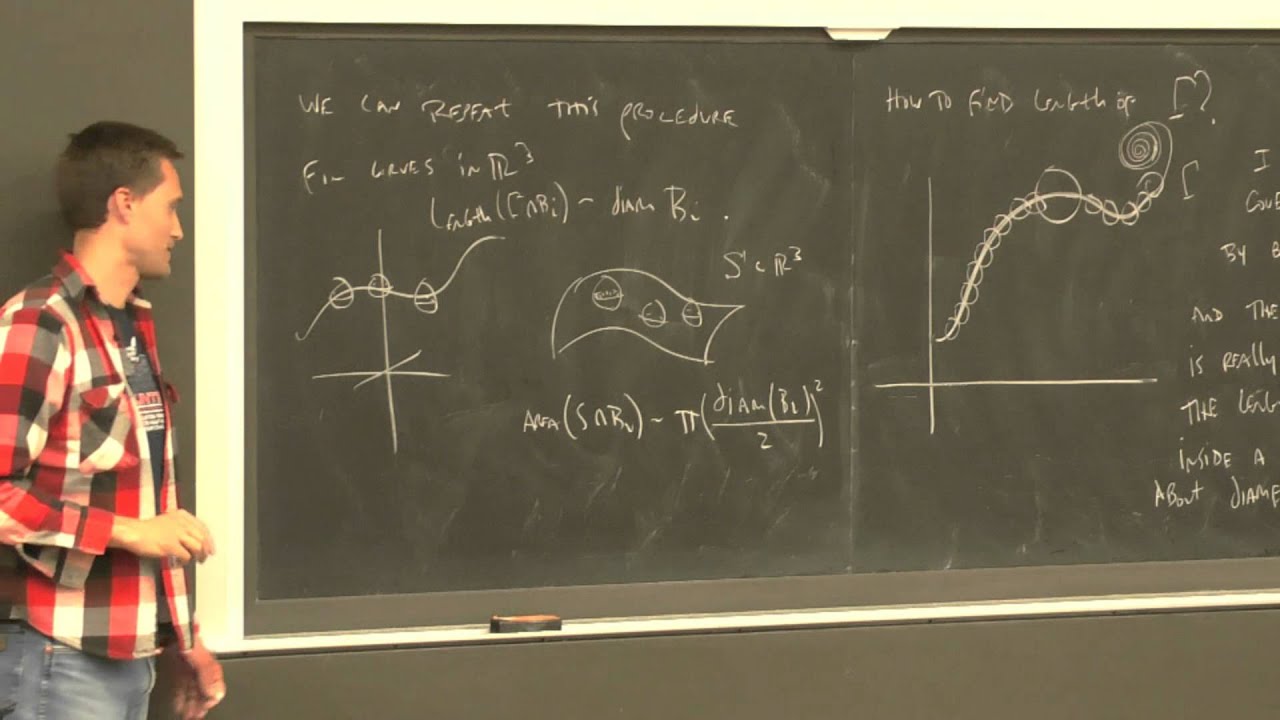 WE CAN REPEAT THIS PROCEDURE
FOR CURVES IN ℝ³
Length(Γ∩Bᵢ) ~ diam Bᵢ .
S ⊂ ℝ³
AREA(S∩Bᵢ) ~ π(diam(Bᵢ)/2)²
HOW TO FIND LENGTH OF Γ?
Γ
I
COVE
BY B
AND THE
IS REALLY
THE LENG
INSIDE A
ABOUT DIAME